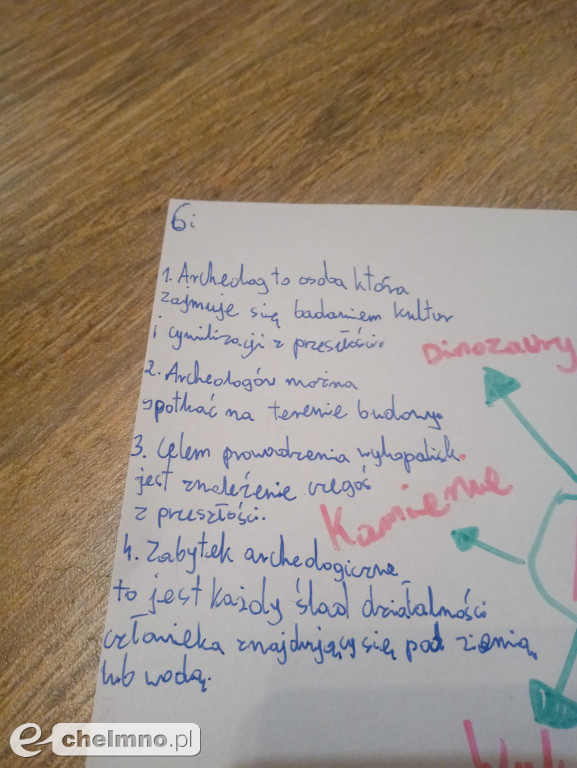 6i
1. Archeolog to osoba która
zajmuje się badaniem kultur
i cywilizacji z przesłości
2. Archeologów można
spotkać na terenie budowy.
3. Celem prowadzenia wykopalisk
jest znalezienie czegoś
z przeszłości.
4. Zabytek archeologiczne
to jest każdy ślad działalności
człowieka znajdujący się pod ziemią
lub wodą.
Dinozaury
Kamienie
e-chelmno.pl